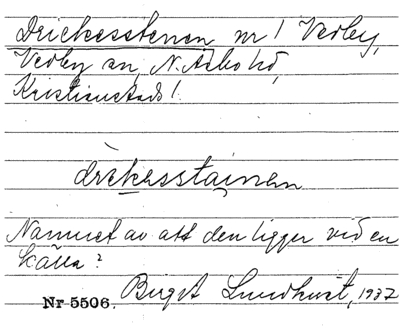 Drickesstenen nr 1 Vedby,
Vedby sn, N. Åsbo hd,
Kristianstads l.
drekesstainen
Namnet av att den ligger vid en
källa?
Nr 5506. Birgit Lundkvist, 1937